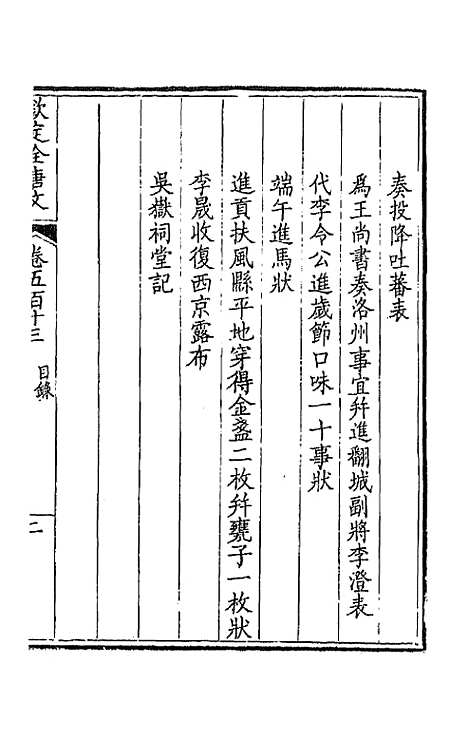 奏投降吐蕃表
爲王尚書奏洛州事宜幷進翻城副將李澄表
代李令公進歲節口味一十事狀
端午進馬狀
進貢扶風縣平地穿得金盞二枚幷甕子一枚狀
李晟收復西京露布
吳嶽祠堂記
欽定全唐文
卷五百十三 目錄
二